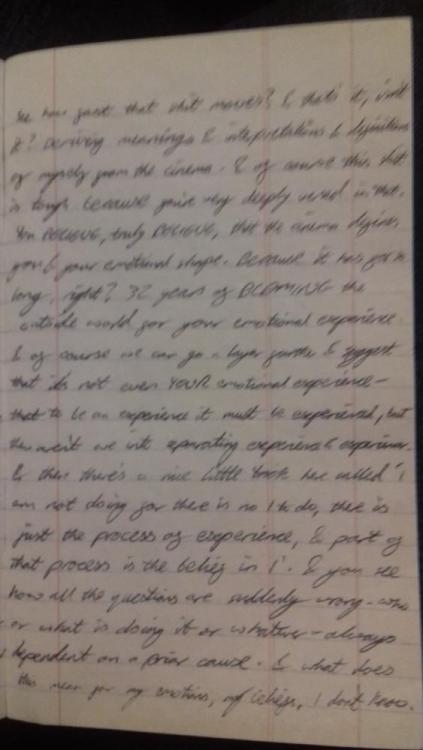 See how fast that shit moves? & that's it, isn't
it? Deriving meanings & interpretations & definitions
of myself from the cinema. & of course this shit
is tough because you're very deeply versed in that.
You BELIEVE, truly BELIEVE, that the cinema defines
you & your emotional shape. Because it has for so
long, right? 32 years of BLAMING the
outside world for your emotional experience.
& of course we can go a layer further & suggest
that it's not even YOUR emotional experience -
that to be an experience it must be experienced, but
then aren't we into separating experience & experiencer.
& then there's a nice little book here called 'I
am not doing for there is no I to do, there is
just the process of experience, & part of
that process is the belief in I'. & you see
how all the questions are suddenly wrong - who
or what is doing it or whatever - always
dependent on a prior cause. & what does
this mean for my emotions, my beliefs, I don't know.